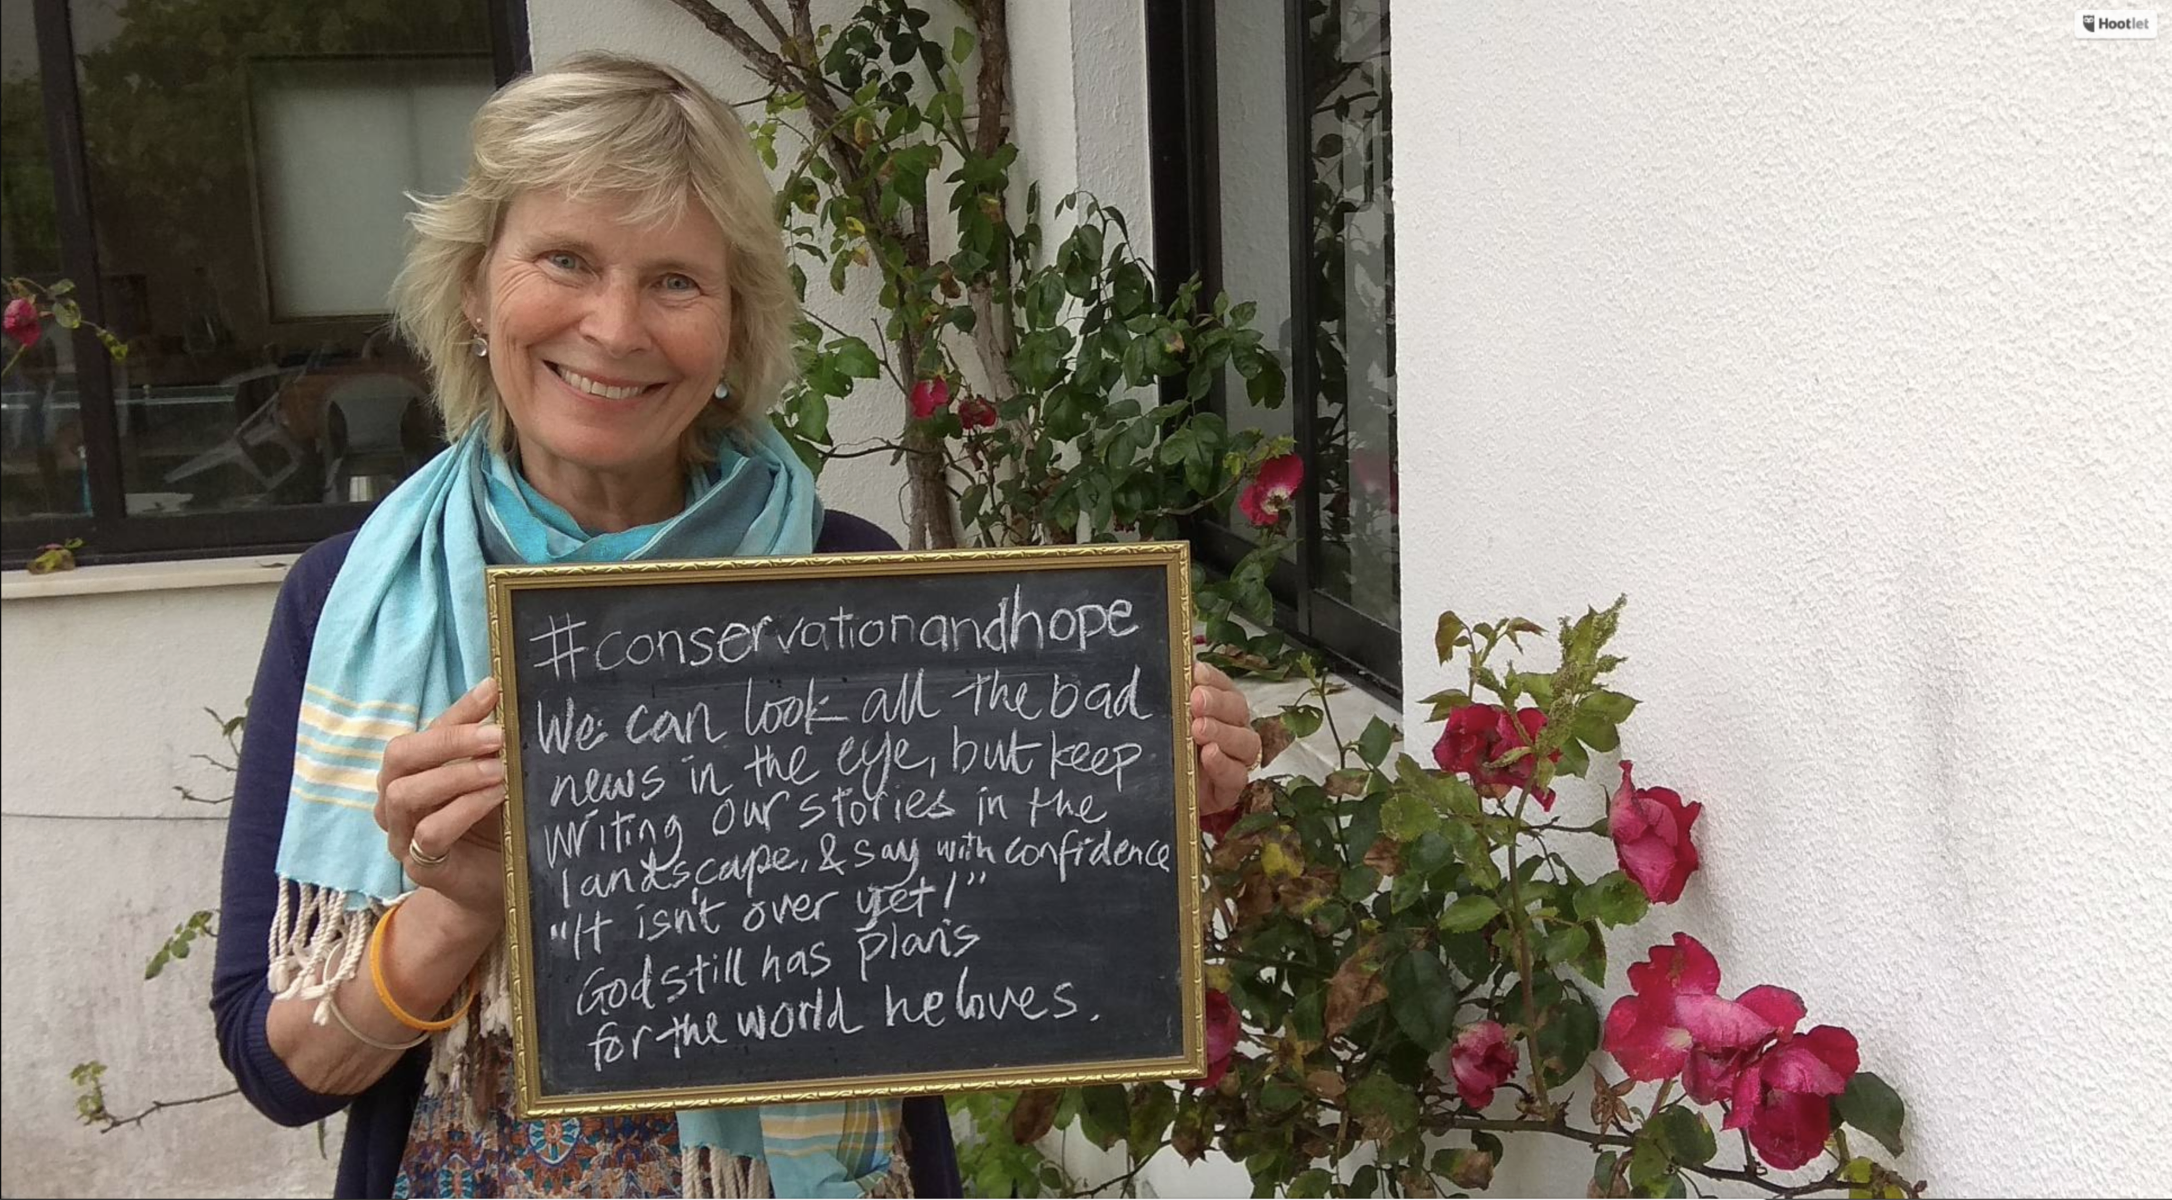 Hootlet
#conservationandhope
We can look all the bad
news in the eye, but keep
writing our stories in the
landscape, & say with confidence
"It isn't over yet!"
God still has plans
for the world he loves.